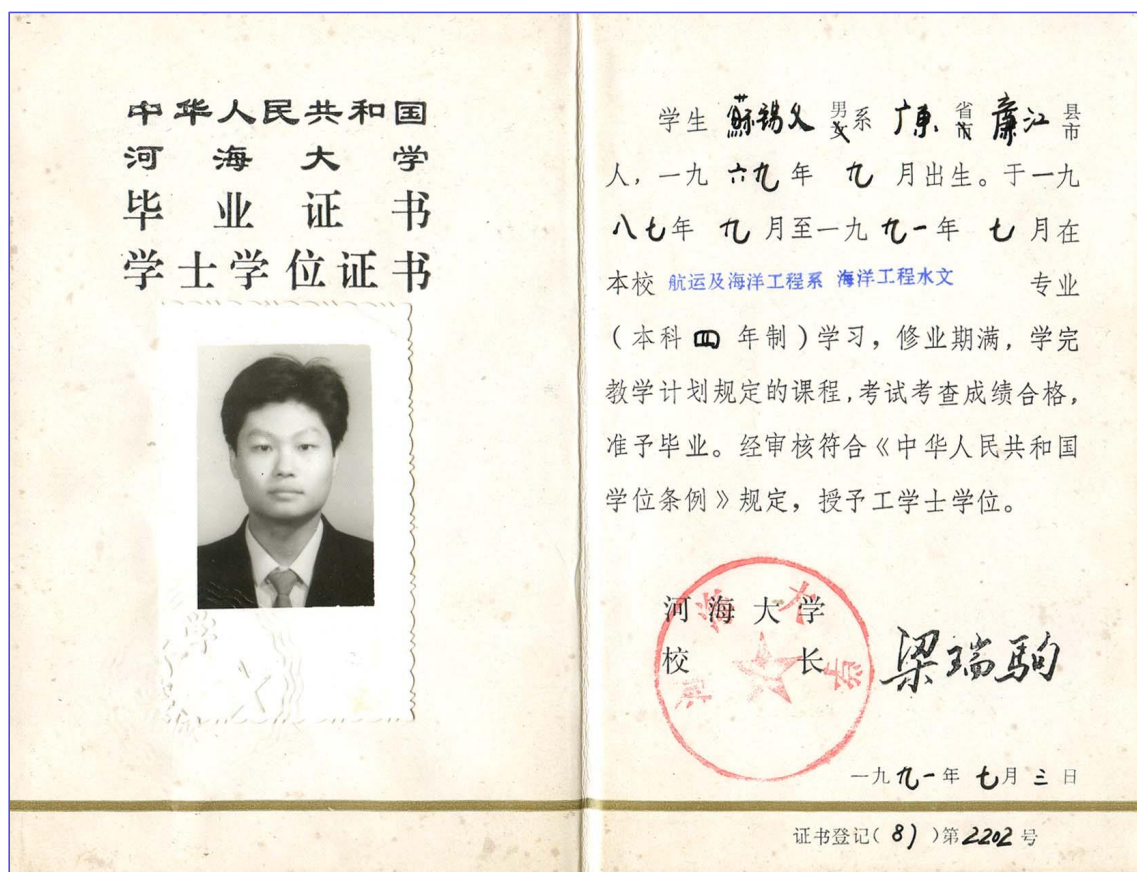 中华人民共和国
河海大学
毕业证书
学士学位证书
学生 蘇锡义 男女系 广東 省市 廉江 县市
人，一九六九年 九 月出生。于一九
八七年 九 月至一九九一年 七 月在
本校 航运及海洋工程系 海洋工程水文 专业
（本科四年制）学习，修业期满，学完
教学计划规定的课程，考试考查成绩合格，
准予毕业。经审核符合《中华人民共和国
学位条例》规定，授予工学士学位。
河海大学
校长 梁瑞駒
河海大学
一九九一年 七月 三 日
证书登记(8)第2202号